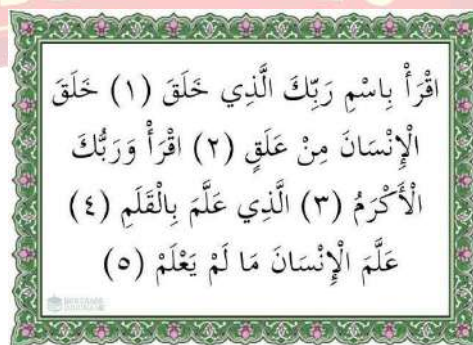 اقْرَأْ بِاسْمِ رَبِّكَ الَّذِي خَلَقَ (١) خَلَقَ
الْإِنْسَانَ مِنْ عَلَقٍ (٢) اقْرَأْ وَرَبُّكَ
الْأَكْرَمُ (٣) الَّذِي عَلَّمَ بِالْقَلَمِ (٤)
عَلَّمَ الْإِنْسَانَ مَا لَمْ يَعْلَمْ (٥)